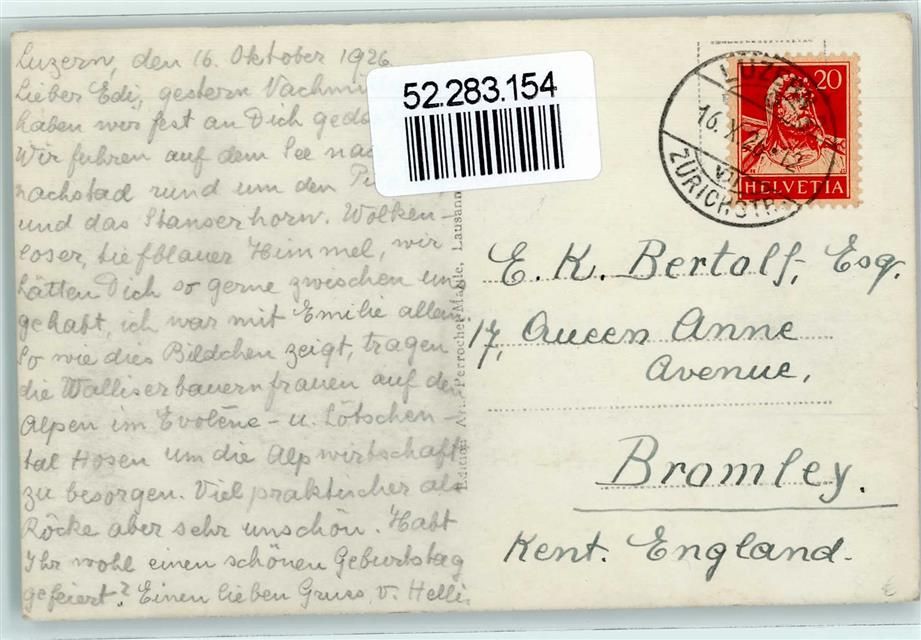 Luzern, den 16. Oktober 1926
Lieber Edi, gestern Nachmi
haben wir fest an Dich gedo
Wir fuhren auf dem See nac
nachstad rund um den Pi
und das Stanserhorn. Wolken-
loser, tiefblauer Himmel, wir
hätten Dich so gerne zwischen un
gehabt, ich war mit Emilie allein
So wie dies Bildchen zeigt, tragen
die Walliserbauernfrauen auf den
Alpen im Evolène- u. Lötschen-
tal Hosen um die Alpwirtschaft
zu besorgen. Viel praktischer als
Röcke aber sehr unschön. Habt
Ihr wohl einen schönen Geburtstag
gefeiert? Einen lieben Gruss, v. Helli
52.283.154
Edition Art. Perrochet Lausann
LUZERN
16. X. 26 - 12
ZÜRICHSTR.
20
HELVETIA
E. K. Bertolf, Esq.
17, Queen Anne
Avenue,
Bromley.
Kent. England.
€